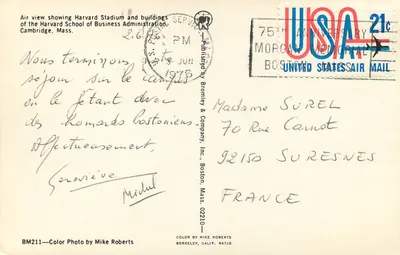 Air view showing Harvard Stadium and buildings
of the Harvard School of Business Administration,
Cambridge, Mass.
2.6.
Nous terminons
séjour sur le campus
en le fêtant avec
des homards bostoniens.
Affectueusement.
Geneviève
Michel
BM211—Color Photo by Mike Roberts
Published by Bromley & Company, Inc., Boston, Mass. 02210
COLOR BY MIKE ROBERTS
BERKELEY, CALIF. 94710
PM
JUN
1975
75TH ANNIVERSARY
BOSTON MASS
USA 21¢
UNITED STATES AIR MAIL
Madame SUREL
70 Rue Carnot
92150 SURESNES
FRANCE